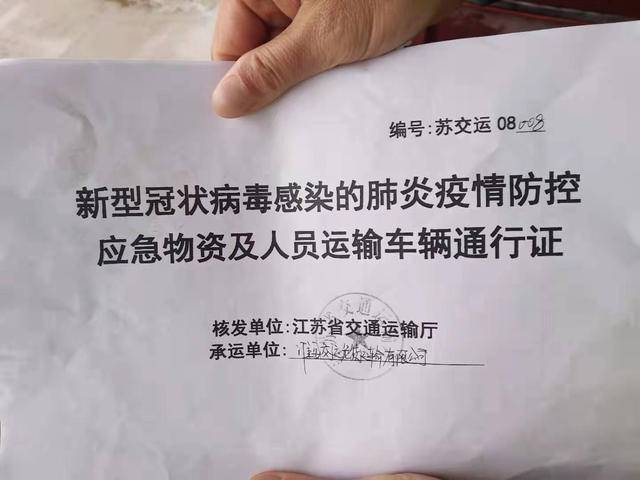 编号:苏交运 08008
新型冠状病毒感染的肺炎疫情防控
应急物资及人员运输车辆通行证
核发单位:江苏省交通运输厅
承运单位:
输有限公司
交通